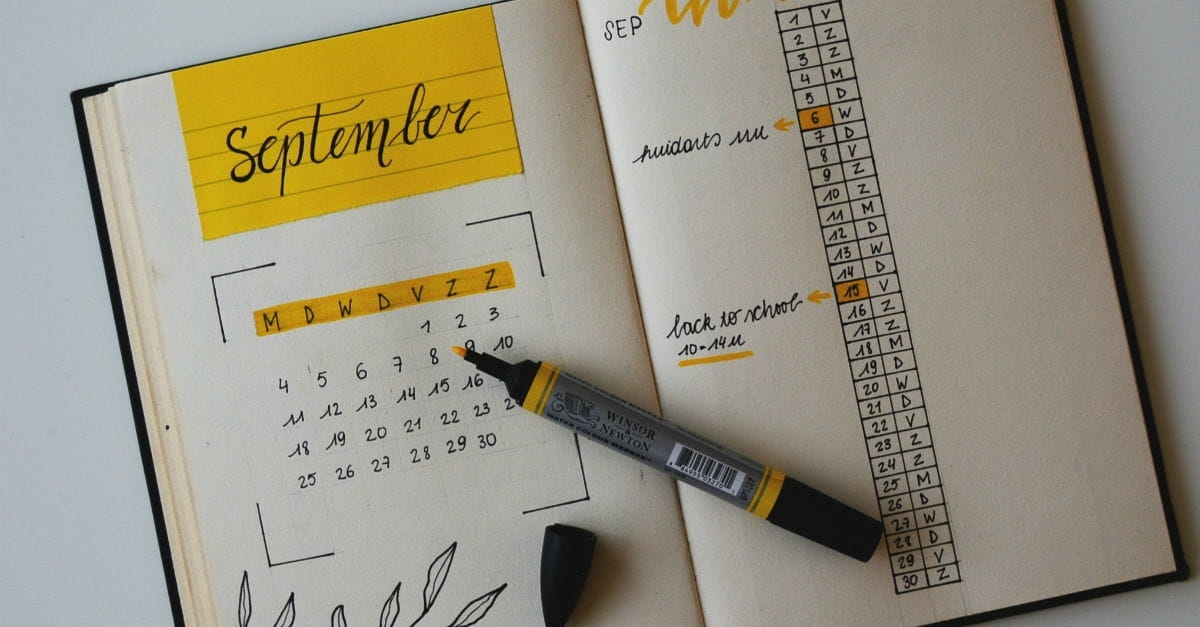 September
M D W D V Z Z
1 2 3
4 5 6 7 8 9 10
11 12 13 14 15 16
18 19 20 21 22 23
25 26 27 28 29 30
SEP
1 V
2 Z
3 Z
4 M
5 D
6 W
huidarts
7 D
8 V
9 Z
10 Z
11 M
12 D
13 W
14 D
15 V
back to school
10-14u
16 Z
17 Z
18 M
19 D
20 W
21 D
22 V
23 Z
24 Z
25 M
26 D
27 W
28 D
29 V
30 Z
WINSOR
&
NEWTON
WATER COLOUR MARKER